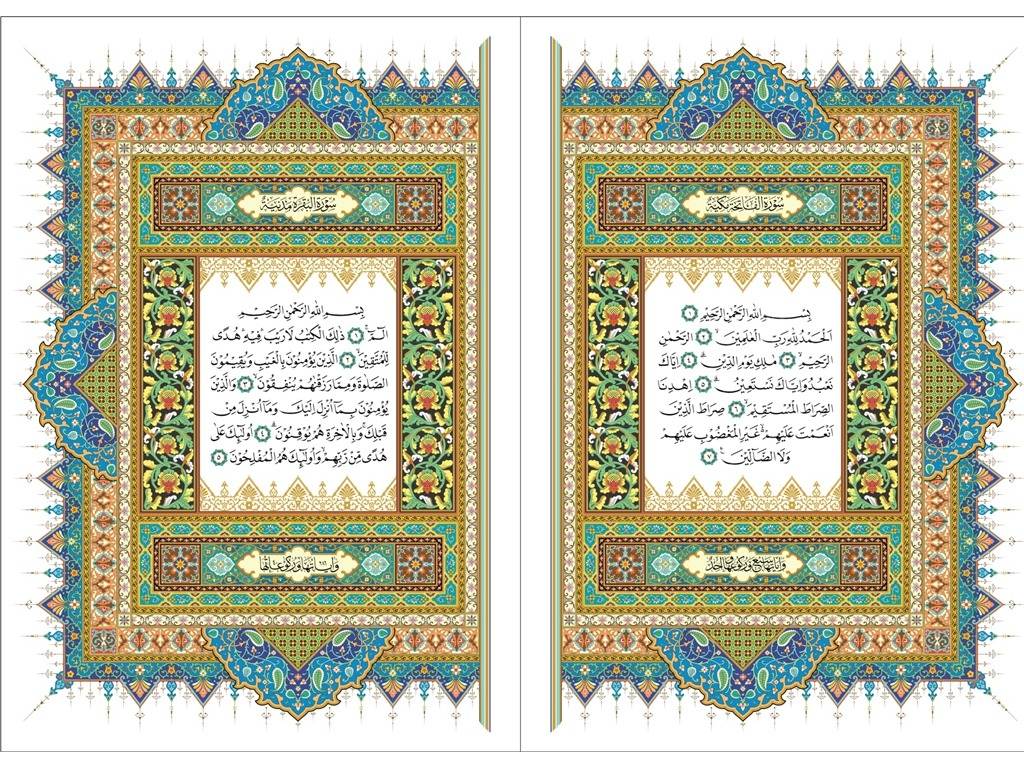 سُورَةُ الْفَاتِحَةِ مَكِّيَّةٌ
بِسْمِ اللهِ الرَّحْمٰنِ الرَّحِيْمِ ١
اَلْحَمْدُ لِلّٰهِ رَبِّ الْعٰلَمِيْنَ ۙ ٢ الرَّحْمٰنِ
الرَّحِيْمِ ۙ ٣ مٰلِكِ يَوْمِ الدِّيْنِ ۗ ٤ اِيَّاكَ
نَعْبُدُ وَاِيَّاكَ نَسْتَعِيْنُ ۗ ٥ اِهْدِنَا
الصِّرَاطَ الْمُسْتَقِيْمَ ۙ ٦ صِرَاطَ الَّذِيْنَ
اَنْعَمْتَ عَلَيْهِمْ ەۙ غَيْرِ الْمَغْضُوْبِ عَلَيْهِمْ
وَلَا الضَّاۤلِّيْنَ ٧
وَاٰيَاتُهَا سَبْعٌ وَرُكُوْعُهَا وَاحِدٌ
سُورَةُ الْبَقَرَةِ مَدَنِيَّةٌ
بِسْمِ اللهِ الرَّحْمٰنِ الرَّحِيْمِ
الۤمّۤ ۚ ١ ذٰلِكَ الْكِتٰبُ لَا رَيْبَ ۛ فِيْهِ ۛ هُدًى
لِّلْمُتَّقِيْنَ ۙ ٢ الَّذِيْنَ يُؤْمِنُوْنَ بِالْغَيْبِ وَيُقِيْمُوْنَ
الصَّلٰوةَ وَمِمَّا رَزَقْنٰهُمْ يُنْفِقُوْنَ ۙ ٣ وَالَّذِيْنَ
يُؤْمِنُوْنَ بِمَآ اُنْزِلَ اِلَيْكَ وَمَآ اُنْزِلَ مِنْ
قَبْلِكَ ۚ وَبِالْاٰخِرَةِ هُمْ يُوْقِنُوْنَ ۗ ٤ اُولٰۤىِٕكَ عَلٰى
هُدًى مِّنْ رَّبِّهِمْ ۙ وَاُولٰۤىِٕكَ هُمُ الْمُفْلِحُوْنَ ٥
وَاٰيَاتُهَا وَرُكُوْعَاتُهَا